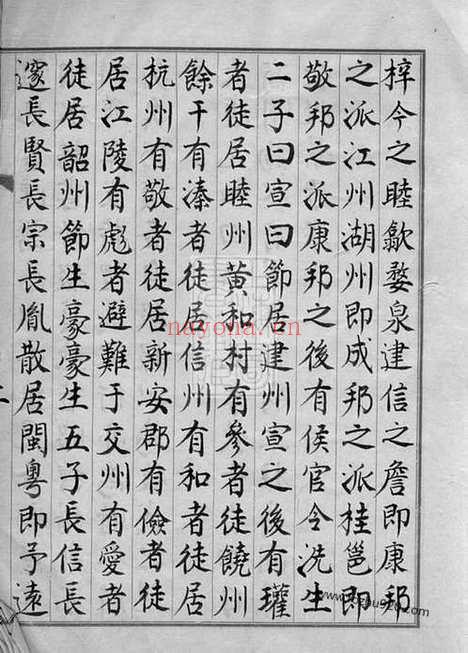 梓今之睦歙婺泉建信之詹即康邦
之派江州湖州即成邦之派桂邕即
敬邦之派康邦之後有侯官令洗生
二子曰宣曰節居建州宣之後有瓘
者徒居睦州黄和村有參者徒饒州
餘干有溱者徒居信州有和者徒居
杭州有敬者徒居新安郡有儉者徒
居江陵有彪者避難于交州有愛者
徒居韶州節生豪豪生五子長信長
邃長賢長宗長胤散居閩粤即予遠
nayona.cn